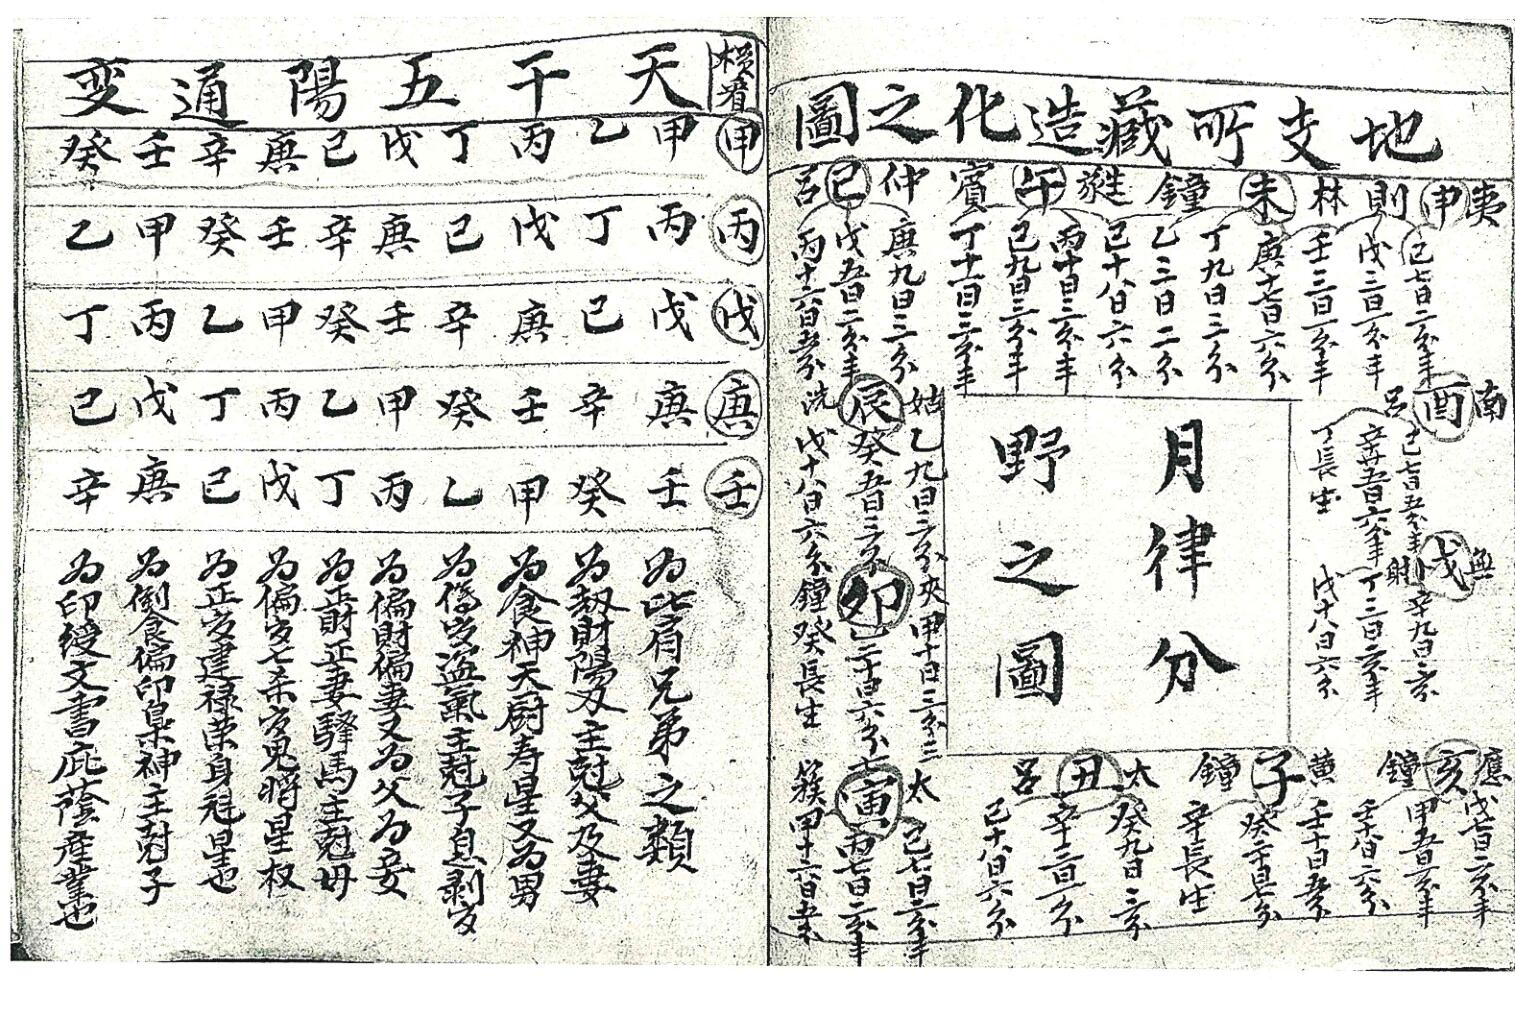 地支所藏造化之圖
夷申則
己七日二分半
戊三日一分半
壬三日一分半
林未鐘
庚十七日六分
丁九日三分
乙三日二分
己十八日六分
蕤午賓
丙十日三分半
己九日三分半
丁十一日三分半
仲巳呂
庚九日三分
戊五日二分半
丙十六日五分
南酉呂
辛廿五日六分半
丁長生
無戌射
辛九日三分
丁三日二分半
戊十八日六分
姑辰洗
乙九日三分
癸五日三分
戊十八日六分
夾卯鐘
甲十日三分三
癸長生
太寅簇
己七日二分半
丙七日二分半
甲十六日五分
應亥鐘
戊七日二分半
甲五日二分半
壬十八日六分
黃子鐘
壬十日五分
辛長生
太丑呂
癸九日三分
辛三日一分
己十八日六分
月律分
野之圖
橫看
天干五陽通变
甲 甲乙丙丁戊己庚辛壬癸
丙 丙丁戊己庚辛壬癸甲乙
戊 戊己庚辛壬癸甲乙丙丁
庚 庚辛壬癸甲乙丙丁戊己
壬 壬癸甲乙丙丁戊己庚辛
為比肩兄弟之類
為刼財陽刃主尅父及妻
為食神天厨寿星又為男
為傷官盜氣主尅子息剥官
為偏財偏妻又為父為妾
為正財正妻驛馬主尅母
為偏官七杀官鬼將星权
為正官建禄荣身冠星也
為倒食偏印梟神主尅子
為印綬文書庇蔭産業也